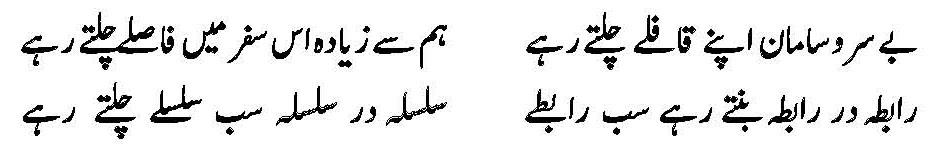 بے سر و سامان اپنے قافلے چلتے رہے ہم سے زیادہ اس سفر میں فاصلے چلتے رہے
رابطہ در رابطہ بنتے رہے سب رابطے سلسلہ در سلسلہ سب سلسلے چلتے رہے